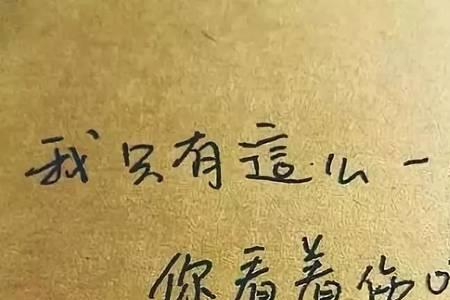 我只有這么一
你看着